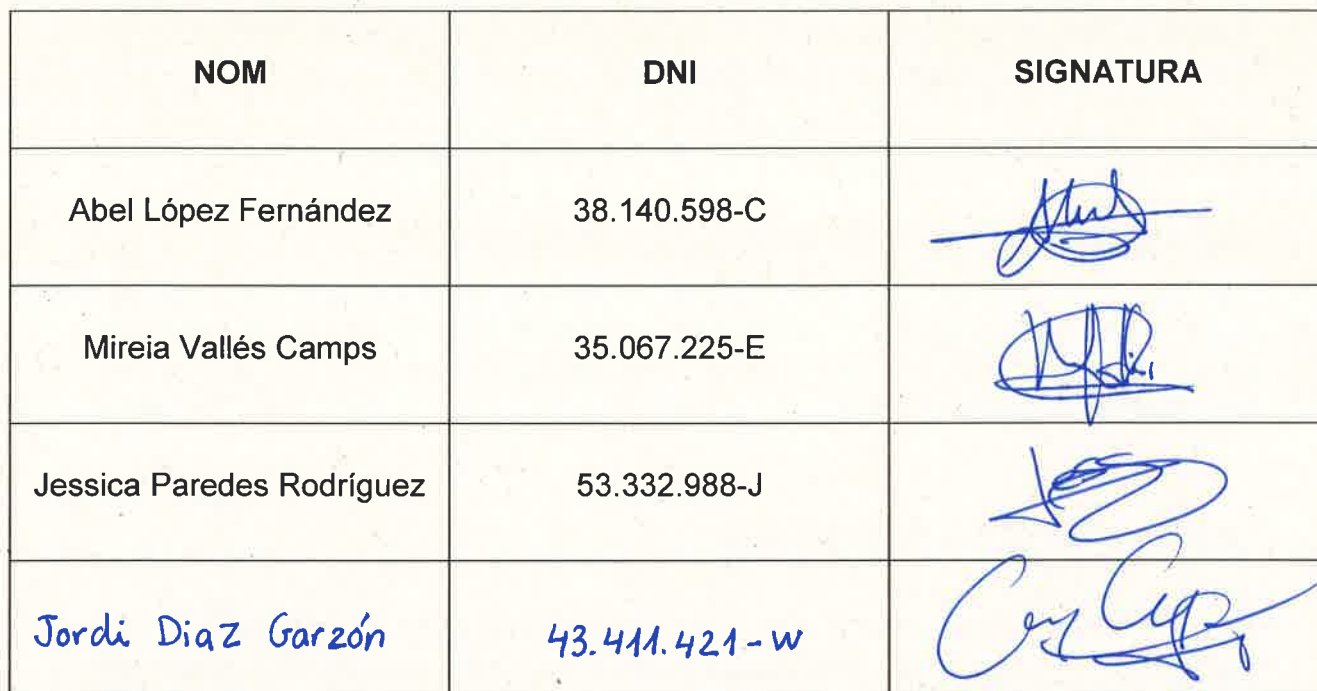 NOM DNI SIGNATURA
Abel López Fernández 38.140.598-C
Mireia Vallés Camps 35.067.225-E
Jessica Paredes Rodríguez 53.332.988-J
Jordi Diaz Garzón 43.411.421-W